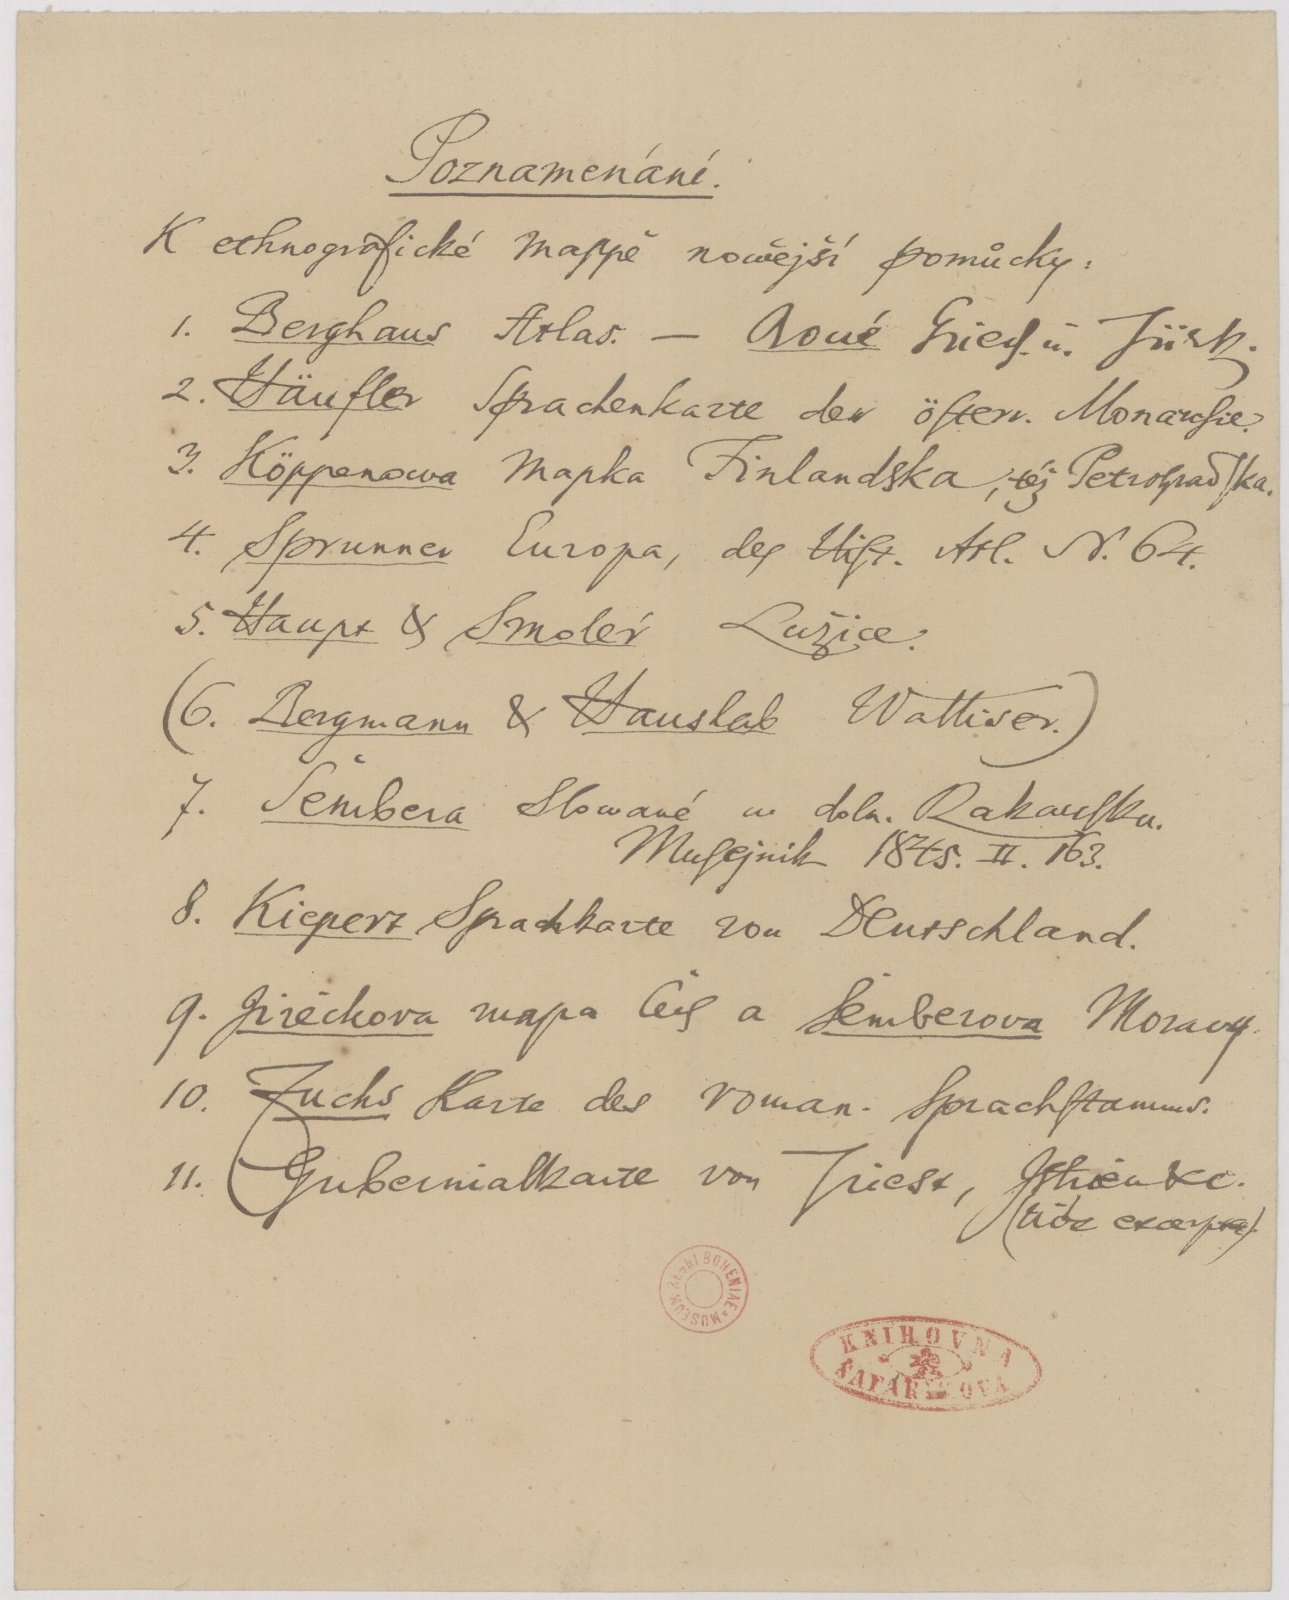 Poznamenání.
K ethnografické mappě nowější pomůcky:
1. Berghaus Atlas. — Boué Griech. u. Türk.
2. Häufler Sprachenkarte der österr. Monarchie.
3. Köppenowa mapka Finlandska, též Petrohradska.
4. Sprunner Europa, des Hist. Atl. N. 64.
5. Haupt & Smoleŕ Lužice.
(6. Bergmann & Hauslab Walliser.)
7. Šembera Slowané w doln. Rakausku.
Musejnik 1845. II. 163.
8. Kiepert Sprachkarte von Deutschland.
9. Jirečkova mapa Čech a Šemberova Moravy.
10. Fuchs Karte des roman. Sprachstamms.
11. Gubernialkarte von Triest, Istrien &c.
(wiz excerpta)
MUSEUM REGNI BOHEMIAE
KNIHOVNA
ŠAFAŘÍKOVA